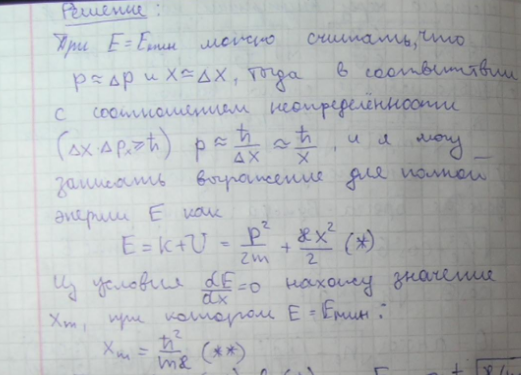 Решение:
При E = Eмин можно считать, что
p ≈ Δp и x ≈ Δx, тогда в соответствии
с соотношением неопределённости
(Δx·Δpₓ ≥ ħ) p ≈ ħ/Δx ≈ ħ/x, и я могу
записать выражение для полной
энергии E как
E = K + U = p²/2m + æx²/2 (*)
Из условия dE/dx = 0 нахожу значение
xₘ, при котором E = Eмин:
xₘ = ħ²/mæ (**)